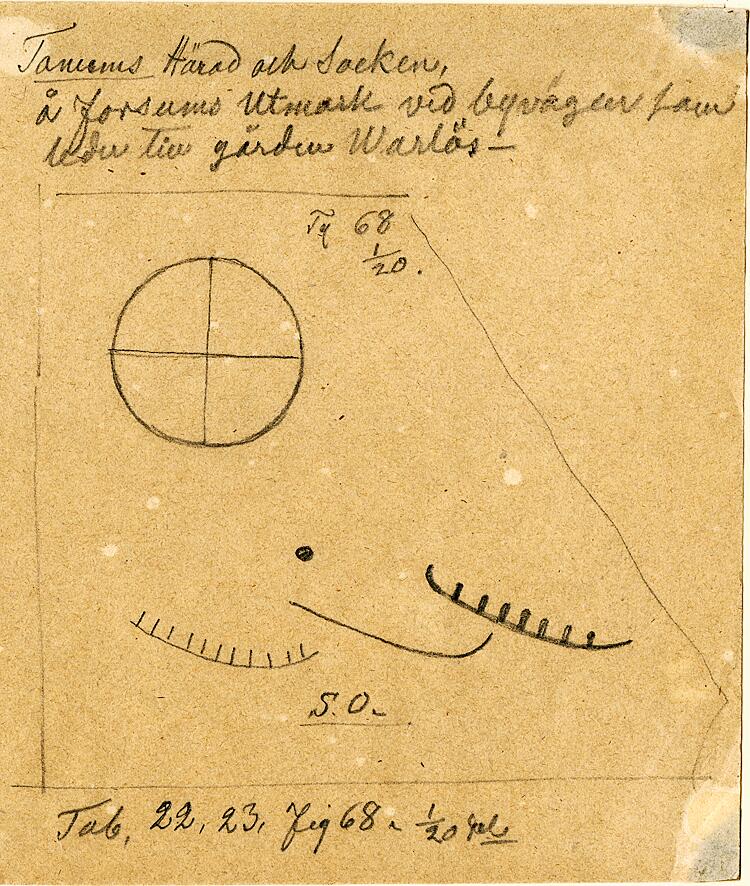 Tanums Härad och Socken,
å Forsums Utmark ved byvägen som
leder till gården Warlös —
Fig 68
1/20.
S.O.
Tab. 22, 23, Fig 68. 1/20